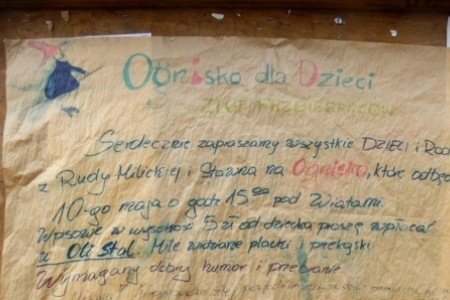 Ognisko dla Dzieci
ZLOT PRZEBIERAŃCÓW
Serdecznie zapraszamy wszystkie DZIECI i Rod
z Rudy Milickiej i Stawna na Ognisko, które odbęd
10-go maja o godz. 15⁰⁰ pod Wiatami.
Wpisowe w wysokość 5 zł od dziecka proszę wpłacać
w Oli Stal. Mile widziane placki i przekąski.
Wymagany dobry humor i przebranie